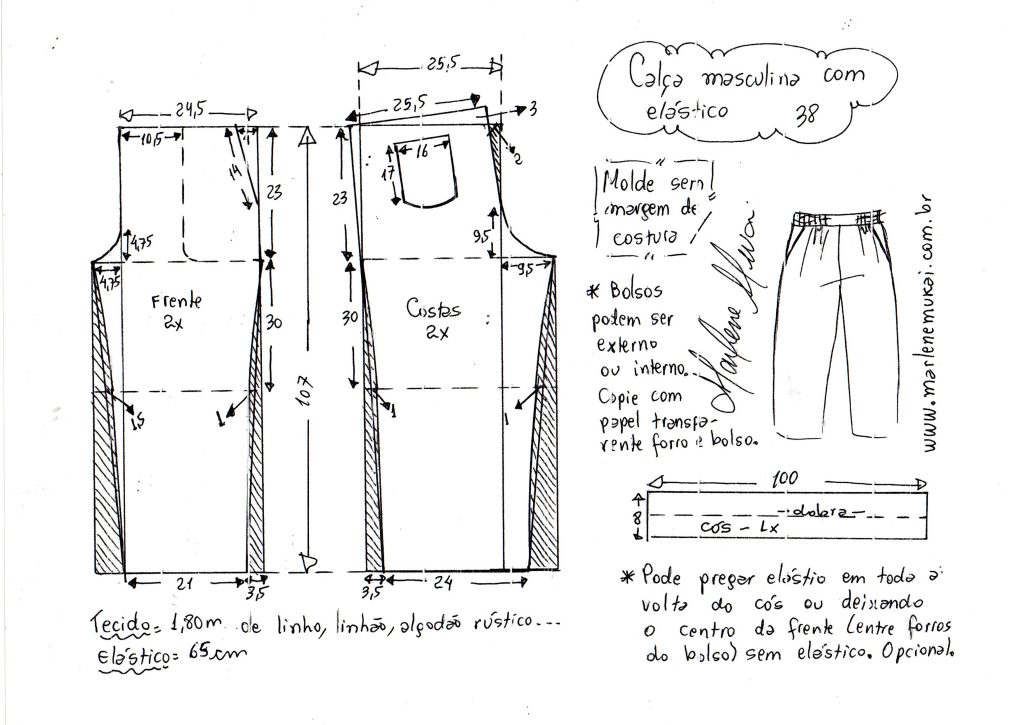 Calça masculina com
elástico 38
Molde sem
margem de
costura
* Bolsos
podem ser
externo
ou interno.
Copie com
papel transpa-
rente forro e bolso.
Marlene Mukai
www.marlenemukai.com.br
24,5
10,5
14
23
4,75
4,75
Frente
2x
30
1,5
1
21
3,5
107
25,5
25,5
3
2
16
17
23
9,5
9,5
Costas
2x
30
1
1
3,5
24
100
8
dobra
cós - 1x
Tecido = 1,80m de linho, linhão, algodão rústico...
Elástico = 65cm
* Pode pregar elástio em toda a
volta do cós ou deixando
o centro da frente (entre forros
do bolso) sem elástico. Opcional.